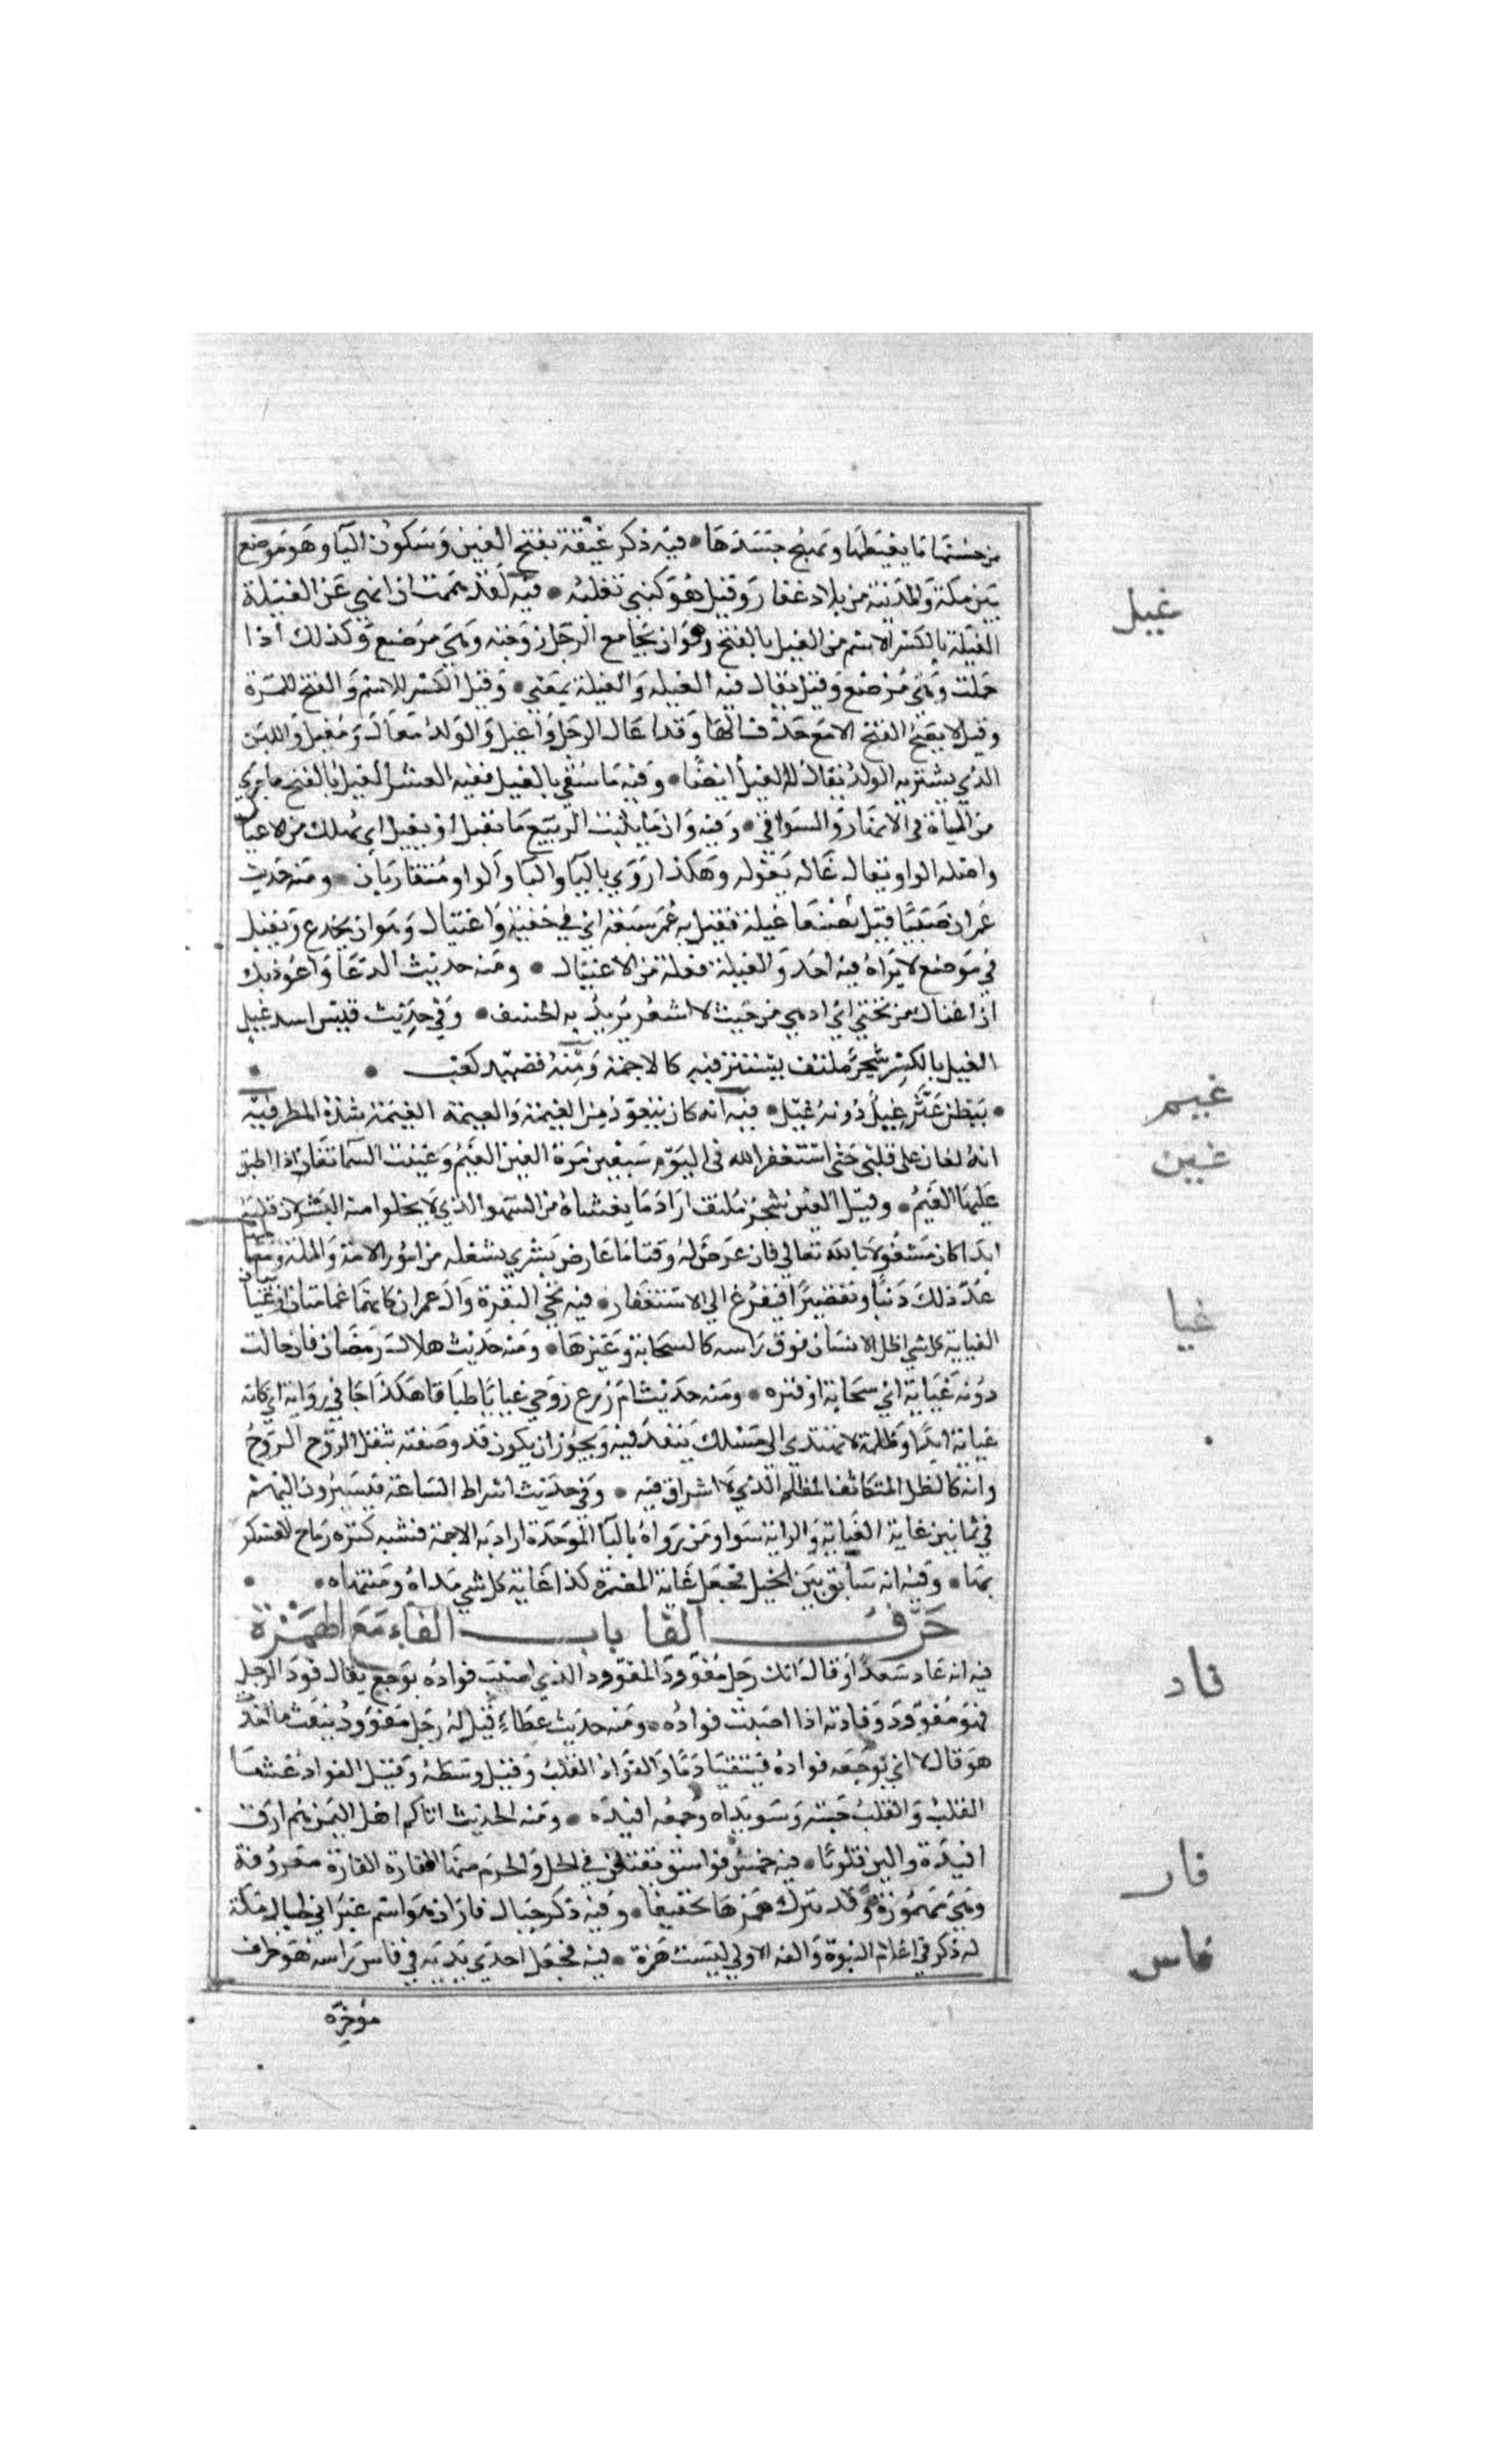 من حسنها ما يغيظها ويهيج حسدها • فيه ذكر غيقة بفتح الغين وسكون اليا وهو موضع
بين مكة والمدينة من بلاد غفار وقيل هو لبني ثعلبة • فيه لقد هممت ان انهي عن الغيلة
غيل
الغيلة بالكسر الاسم من الغيل بالفتح وهو ان يجامع الرجل زوجته وهي مرضع وكذلك اذا
حملت وهي مرضع وقيل يقال فيه الغيلة والغيلة بمعني • وقيل الكسر للاسم والفتح للمرة
وقيل لا يصح الفتح الا مع حذف الها وقد اغال الرجل واغيل والولد مغال ومغيل واللبن
الذي يشتربه الولد يقال له الغيل ايضا • وفيه ما سقي بالغيل ففيه العشر الغيل بالفتح ما جري
من المياه في الانهار والسواقي • وفيه وان مما ينبت الربيع ما يقتل او يغيل اي يهلك من الاغتيال
واصله الواو يقال غاله يغوله وهكذا روي باليا واليا والواو متقاربان • ومنه حديث
عمر ان صبيا قتل بصنعا غيلة فقتل به عمر سبعة اي في خفية واغتيال وهو ان يخدع ويقتل
في موضع لا يراه فيه احد والغيلة فعلة من الاغتيال • ومنه حديث الدعا واعوذ بك
ان اغتال من تحتي اي ادهي من حيث لا اشعر يريد به الخسف • وفي حديث قيس اسد غيل
الغيل بالكسر شجر ملتف يستتر فيه كالاجمة ومنه قصيد كعب •
• ببطن عثر غيل دونه غيل • فيه انه كان يتعوذ من الغيمة والعيمة الغيمة شدة المطر فيه
غيم
انه ليغان علي قلبي حتي استغفر الله في اليوم سبعين مرة الغين الغيم وغينت السما تغان اذا اطبق
غين
عليها الغيم • وقيل الغين شجر ملتف اراد ما يغشاه من السهو الذي لا يخلو امنه البشر لان قلبه
ابدا كان مشغولا بالله تعالي فان عرض له وقتا ما عارض بشري يشغله من امور الامة والملة ومصالحهما
عد ذلك ذنبا وتقصيرا فيفزع الي الاستغفار • فيه تجي البقرة وال عمران كانهما غمامتان او غيايتان
غيا
الغياية كل شي اظل الانسان فوق راسه كالسحابة وغيرها • ومنه حديث هلال رمضان فان حالت
دونه غياية اي سحابة او قترة • ومنه حديث ام زرع زوجي غيايا طباقا هكذا جا في رواية اي كانه
غياية ابدا وظلمة لا يهتدي الي مسلك ينفذ فيه ويجوز ان يكون قد وصفته بثقل الروح
وانه كالظل المتكاثف المظلم الذي لا اشراق فيه • وفي حديث اشراط الساعة فيسيرون اليهم
في ثمانين غاية الغاية والراية سوا ومن رواه بالبا الموحدة اراد به الاجمة فشبه كثرة رماح العسكر
بها • وفيه انه سابق بين الخيل فجعل غاية المضمرة كذا غاية كل شي مداه ومنتهاه •
حرف الفا باب الفاء مع الهمزة
فيه انه عاد سعدا وقال انك رجل مفؤود المفؤود الذي اصيب فواده بوجع يقال فود الرجل
فاد
فهو مفؤود وفادته اذا اصبت فواده • ومنه حديث عطاء قيل له رجل مفؤود ينفث دما احدث
هو قال لا اي يوجعه فواده فيتقيا دما والفواد القلب وقيل وسطه وقيل الفواد غشا
القلب والقلب حبته وسويداه وجمعه افيدة • ومنه الحديث اتاكم اهل اليمن هم ارق
افيدة والين قلوبا • فيه خمس فواسق يقتلن في الحل والحرم منها الفارة الفارة معروفة
فار
وهي مهموزة وقد يترك همزها تخفيفا • وفيه ذكر جبال فاران هو اسم عبراني لجبال مكة
له ذكر في اعلام النبوة والفه الاولي ليست همزة • فيه فجعل احدي يديه في فاس راسه هو طرف
فاس
مؤخره